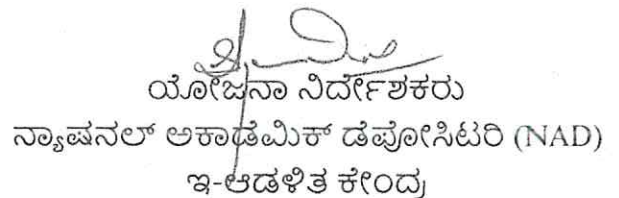 ಯೋಜನಾ ನಿರ್ದೇಶಕರು
ನ್ಯಾಷನಲ್ ಅಕಾಡೆಮಿಕ್ ಡೆಪೋಸಿಟರಿ (NAD)
ಇ-ಆಡಳಿತ ಕೇಂದ್ರ